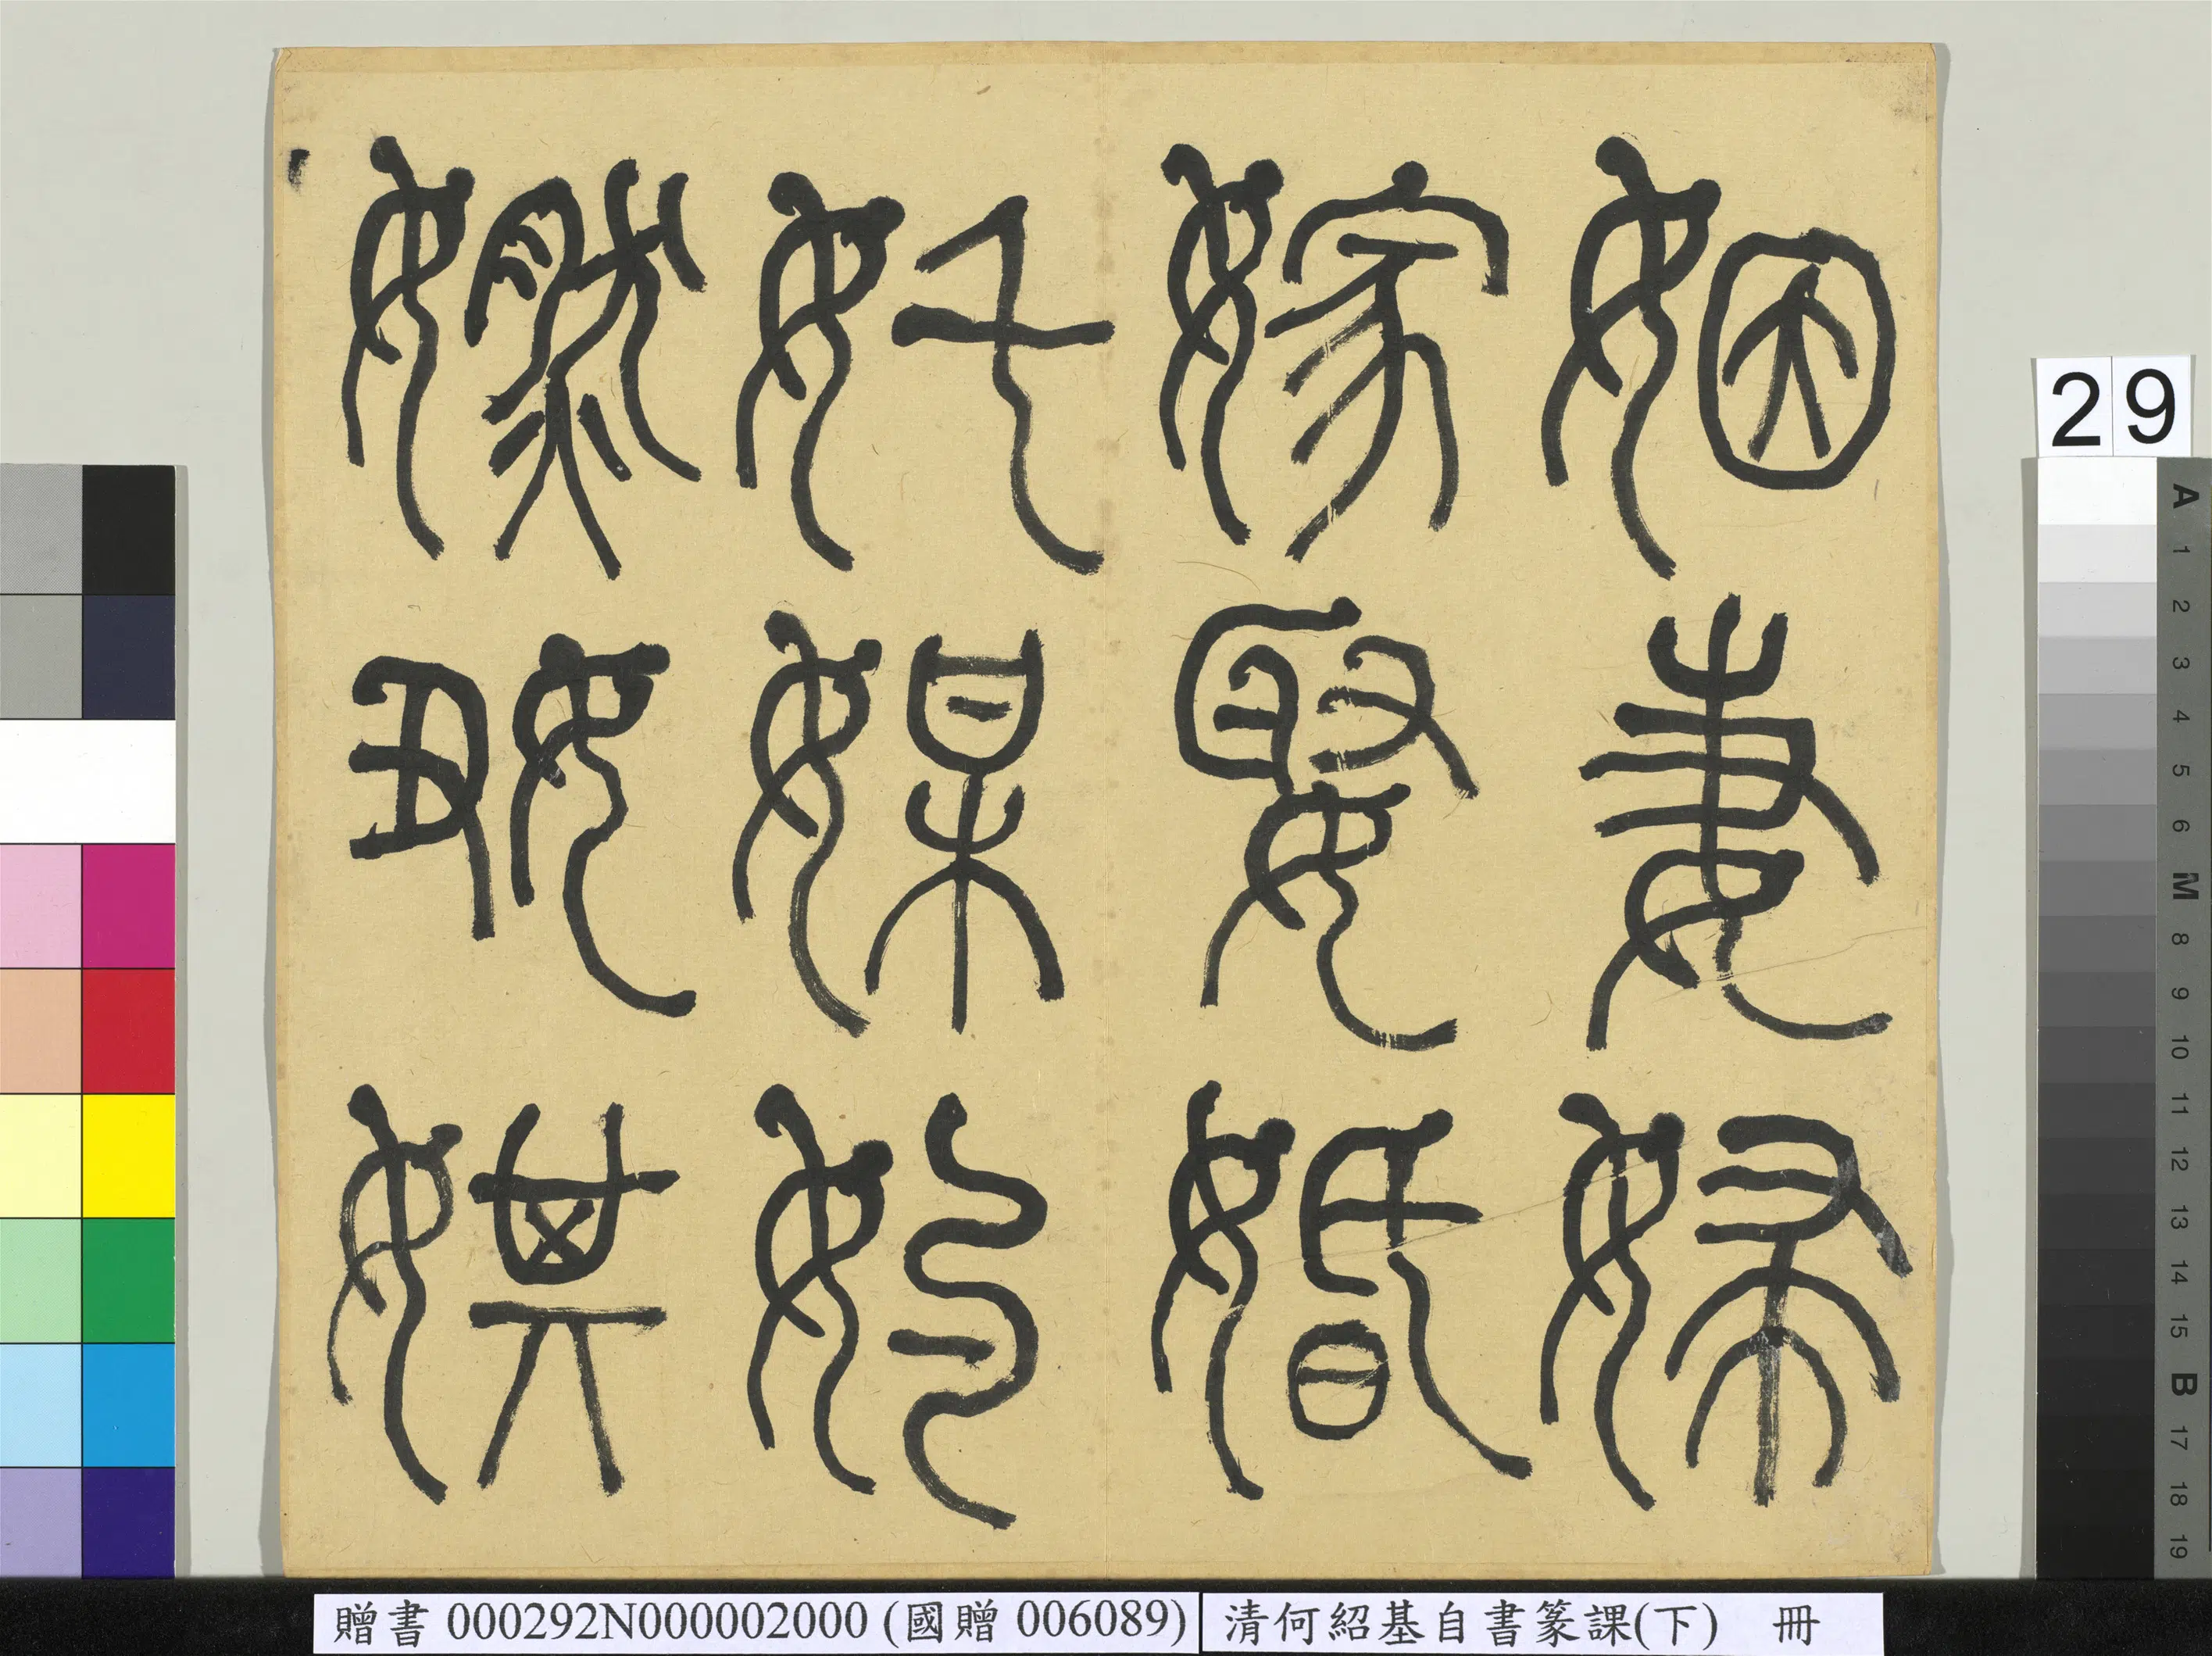 㜣㚥娸
奼媒妁
嫁娶婚
姻妻婦
29
A 1 2 3 4 5 6 M 8 9 10 11 12 13 14 15 B 17 18 19
贈書 000292N000002000 (國贈 006089)
清何紹基自書篆課(下) 冊